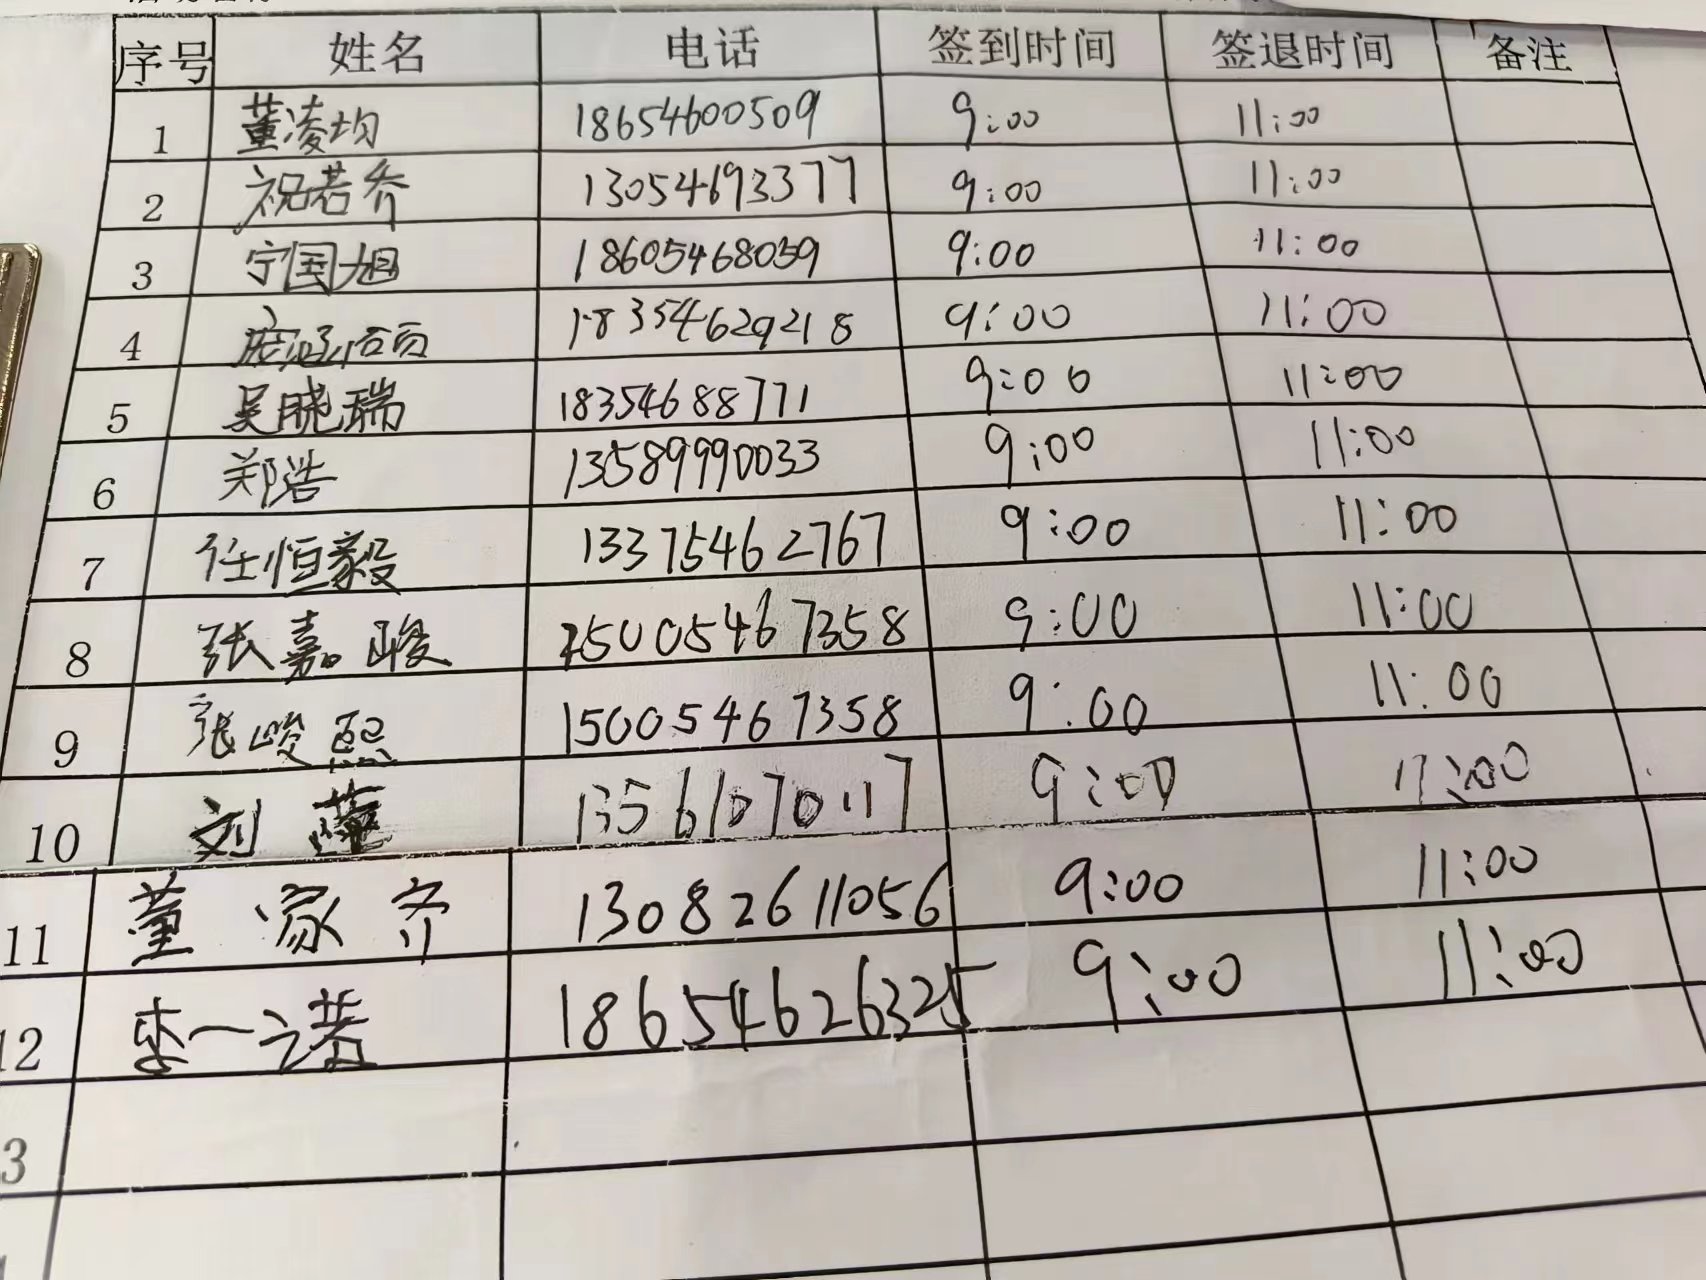 序号 姓名 电话 签到时间 签退时间 备注
1 董凌均 18654600509 9:00 11:00
2 祝若乔 13054693377 9:00 11:00
3 宁国旭 18605468059 9:00 11:00
4 18354629218 9:00 11:00
5 吴晓瑞 18354688771 9:00 11:00
6 郑浩 13589990033 9:00 11:00
7 任恒毅 13375462767 9:00 11:00
8 张嘉峻 15005467358 9:00 11:00
9 张峻熙 15005467358 9:00 11:00
10 刘 13561070117 9:00 11:00
11 董家齐 13082611056 9:00 11:00
12 李一诺 18654626325 9:00 11:00
3